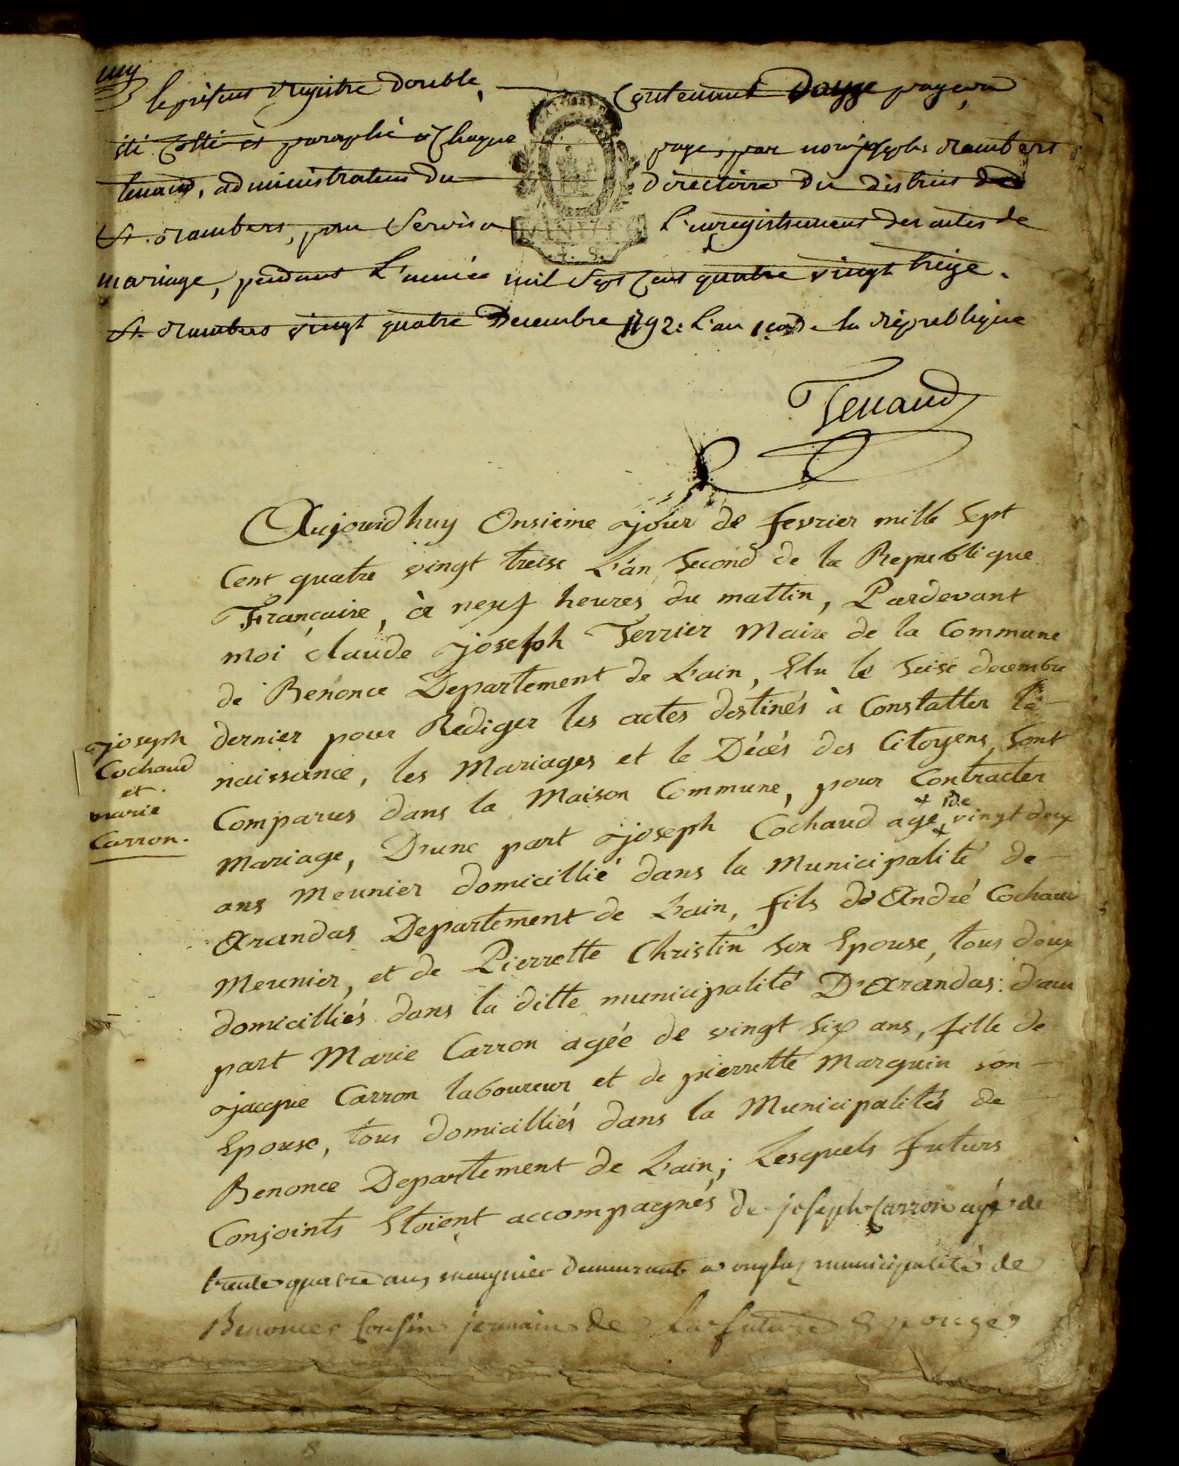 le présent régistre double, contenant douze pages a
été cotté et paraphé a chaque page, par nous joseph rambert
tenand, administrateur du directoire du district de
St. rambert, pour servir a l'enregistrement des actes de
mariage, pendant l'année mil sept cent quatre vingt treize.
St. rambert vingt quatre Decembre 1792. L'an 1er de la république
Tenand
Aujourdhuy Onsieme jour de fevrier mille Sept
Cent quatre vingt treise L'an Second de la Republique
Française, à neuf heures du mattin, Pardevant
moi claude joseph Terrier Maire de la Commune
de Benonce Departement de L'ain, Elu le Seise decembre
dernier pour Rediger les actes destinés à Constatter la
naissance, les Mariages et le Décés des Citoyens, Sont
Comparus dans la Maison Commune, pour Contracter
Mariage, D'une part joseph Cochaud agé de vingt deux
ans Meunier domicillié dans la Municipalité de
Arandas Departement de L'ain, fils de André Cochaud
Meunier, et de Pierrette Christin Son Epouse, tous deux
domicilliés dans la ditte municipalité D'Arandas: d'au
part Marie Carron agée de vingt Six ans, fille de
jacque Carron laboureur et de pierrette Marguin son
Epouse, tous domicilliés dans la Municipalités de
Benonce Departement de L'ain; Lesquels futurs
Conjoints Etoient accompagnés de joseph Carron agé de
trente quatre ans meugnier demeurant a municipalité de
Benonce Cousin jermain de La future Epouse
joseph
Cochaud
et
marie
Carron.